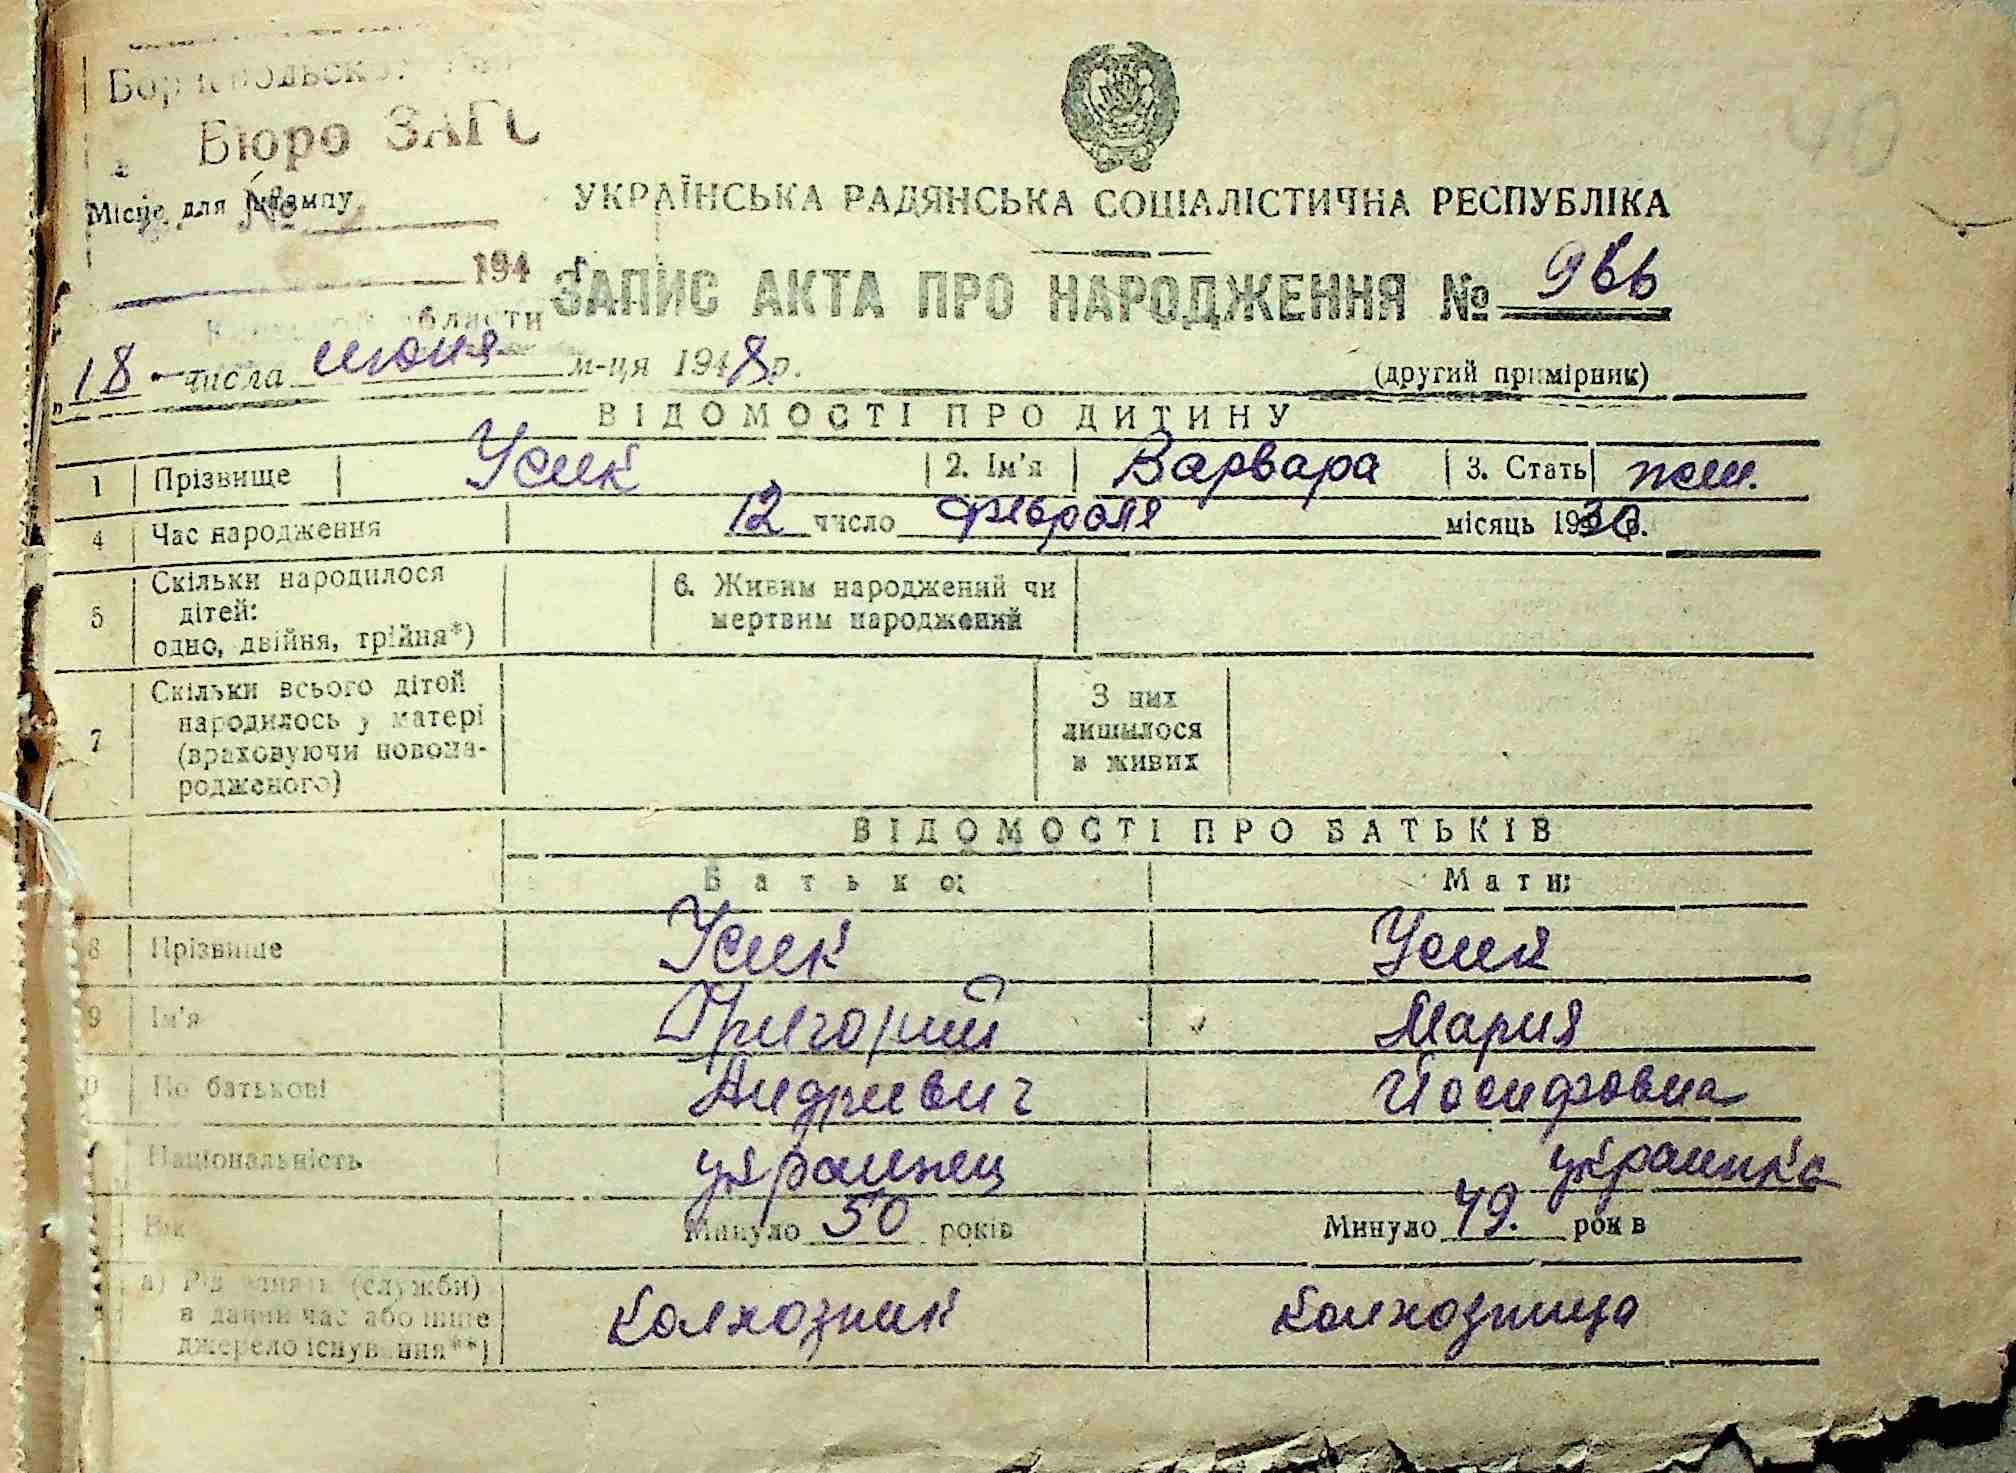 Бюро ЗАГС
40
Місце для штампу
№
УКРАЇНСЬКА РАДЯНСЬКА СОЦІАЛІСТИЧНА РЕСПУБЛІКА
194
ЗАПИС АКТА ПРО НАРОДЖЕННЯ № 966
области
18 числа июня м-ця 1948 р.
(другий примірник)
ВІДОМОСТІ ПРО ДИТИНУ
1 Прізвище Усик 2. Ім'я Варвара 3. Стать жен.
4 Час народження 12 число февраля місяць 1930 р.
5 Скільки народилося дітей: одно, двійня, трійня*) 6. Живим народжений чи мертвим народжений
7 Скільки всього дітей народилось у матері (враховуючи новона-родженого) З них лишилося в живих
ВІДОМОСТІ ПРО БАТЬКІВ
Батько: Мати:
8 Прізвище Усик Усик
9 Ім'я Григорий Мария
По батькові Андреевич Иосифовна
Національність украинец украинка
Вік Минуло 50 років Минуло 49. років
а) Рід занять (служби) в даний час або інше джерело існування**) колхозник колхозница